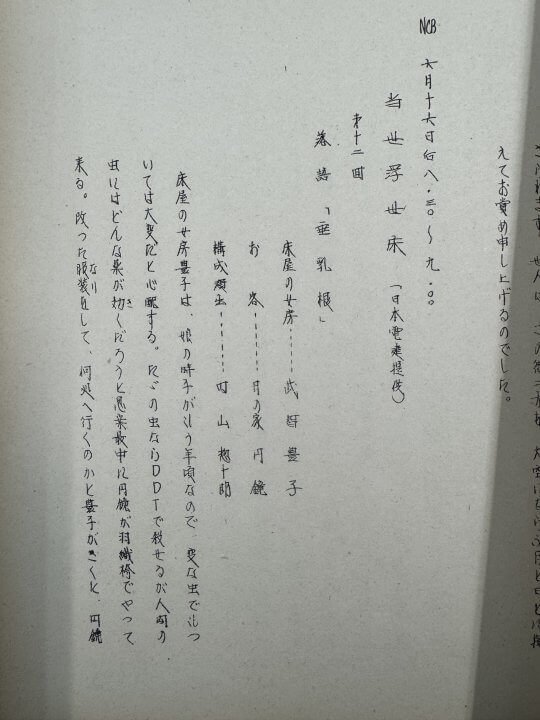 えてお賞め申し上げるのでした。
NCB 六月十六日后八・三〇〜九・〇〇
当世浮世床 (日本電建提供)
第十二回
落語「垂乳根」
床屋の女房……武智豊子
お客………月の家円鏡
構成演出………町山惣十郎
床屋の女房豊子は、娘の時子が年頃なので、変な虫でもつ
いては大変だと心配する。ただの虫ならDDTで殺せるが人間の
虫にはどんな薬が効くだろうと思案最中に円鏡が羽織袴でやって
来る。改った服装をして、何処へ行くのかと豊子がきくと、円鏡